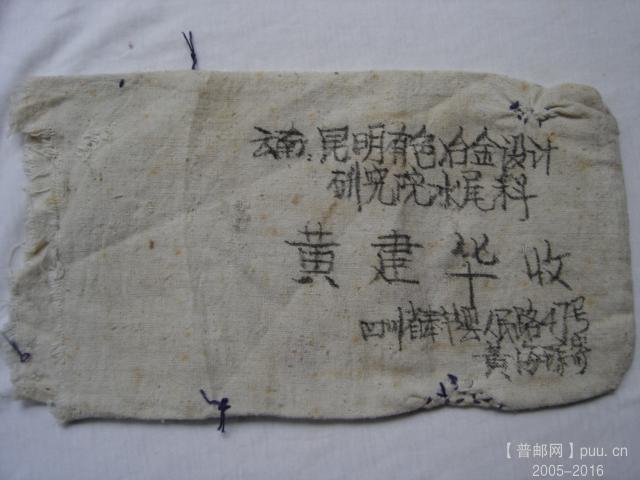 云南:昆明有色冶金设计
研究院水尾科
黄建华收
四川省 县人民路47号
黄海 寄
【普邮网】puu.cn
2005-2016